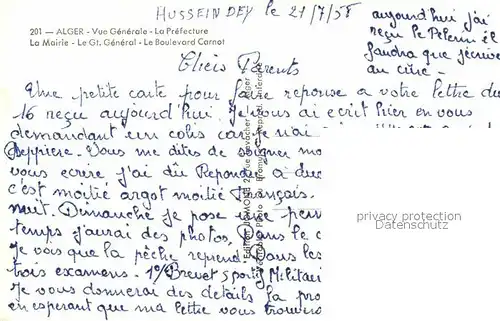 HUSSEIN DEY le 21/7/58
201 — ALGER - Vue Générale - La Préfecture
La Mairie - Le Gt. Général - Le Boulevard Carnot
aujourd'hui j'ai
reçu le Pelerin et
faudra que j'écrive
au curé
Chers Parents
Une petite carte pour faire reponse a votre lettre du
16 reçu aujourd'hui. Je vous ai ecrit hier en vous
demandant un colis car je n'ai
Vous me dites de soigner mo
vous ecrire j'ai dû Repondre a
c'est moitié argot moitié Français.
nuit. Dimanche je pose une perm
temps j'aurai des photos. Dans le c
Je vois que la pêche reprend. Dans les
trois examens. 1°/ Brevet Sportif Militair
Je vous donnerai des details la pro
en esperant que ma lettre vous trouvera
privacy protection
Datenschutz